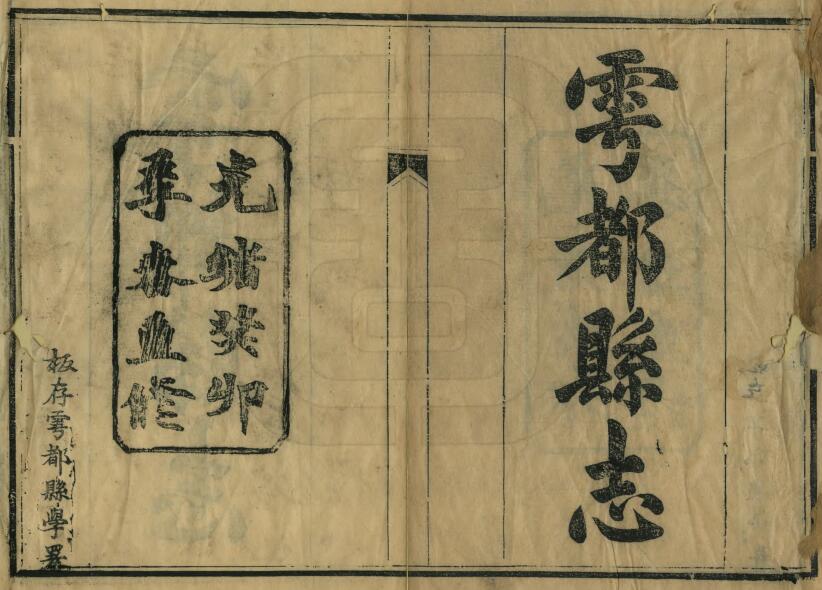 雩都縣志
光緒癸卯
年春重修
板存雩都縣學署